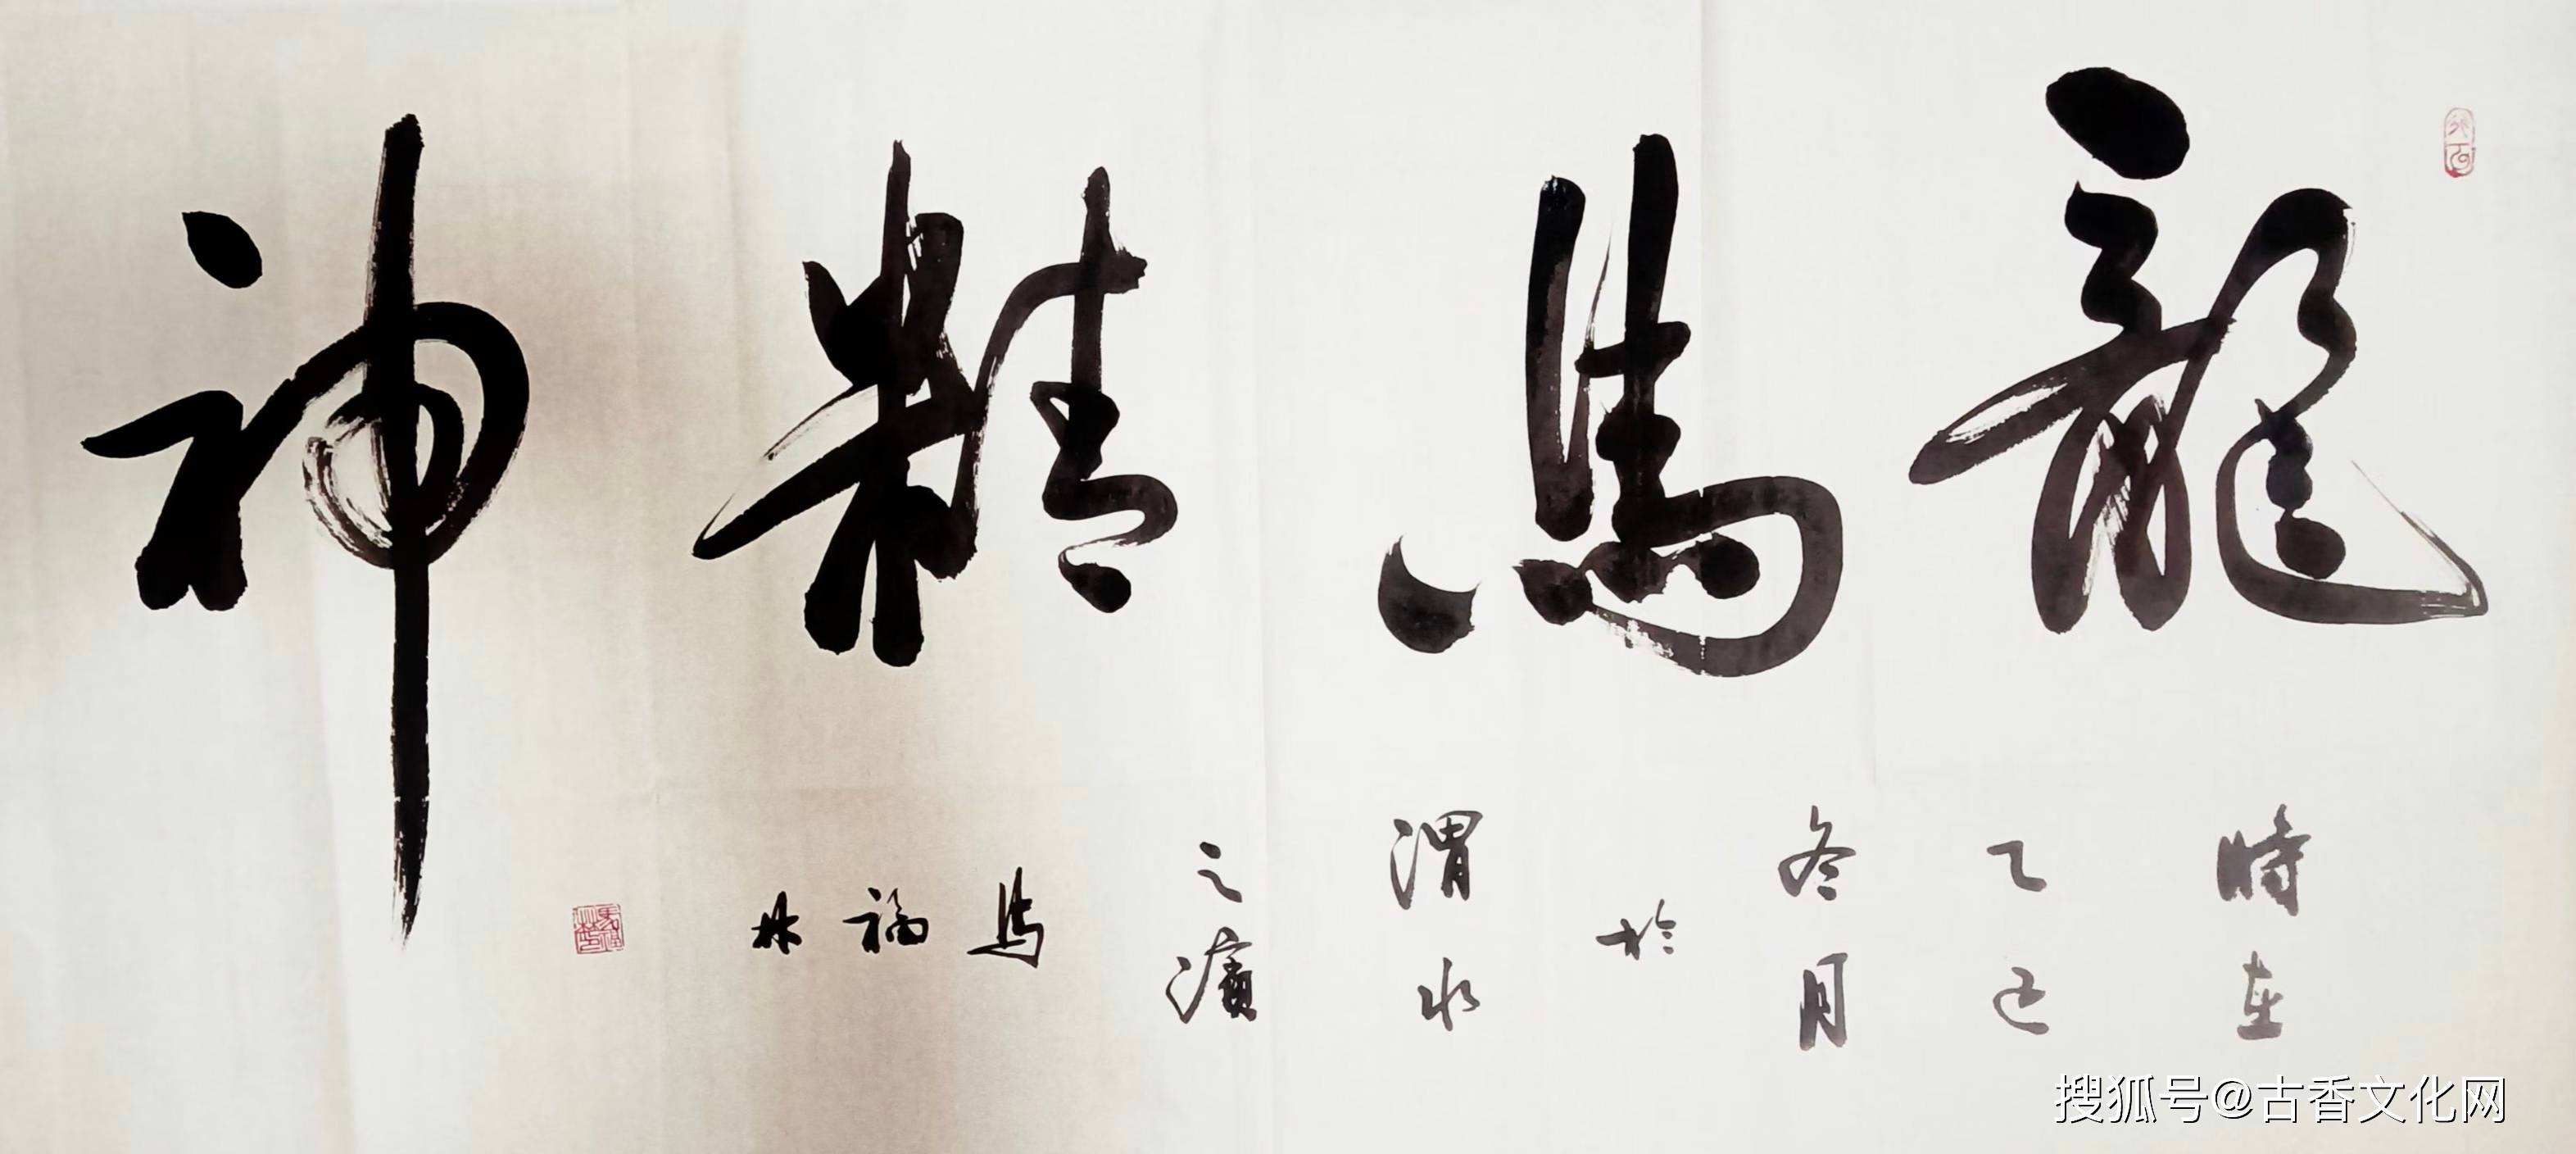 龍馬精神
時在
乙巳
冬月
於
渭水
之濱
馬福林
搜狐号@古香文化网